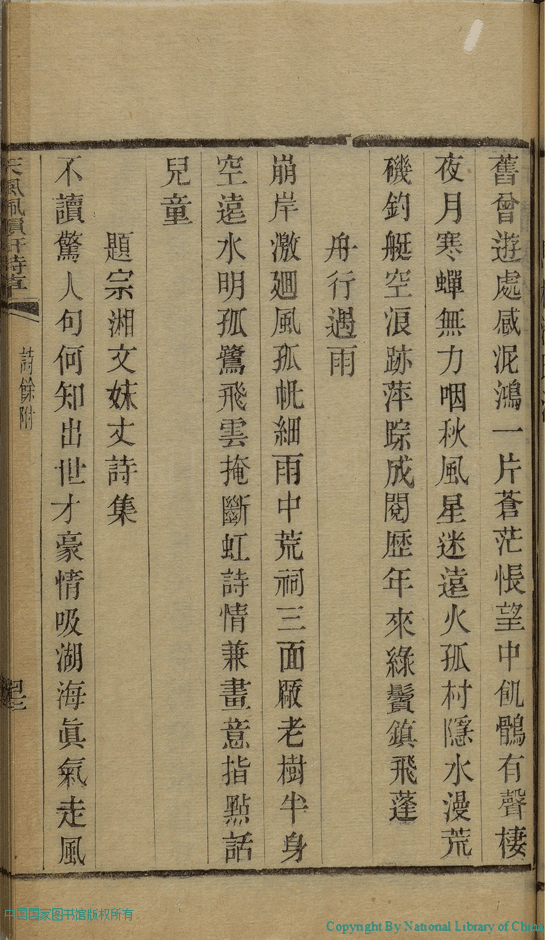 舊曾遊處感泥鴻一片蒼茫悵望中飢鶻有聲棲
夜月寒蟬無力咽秋風星迷遠火孤村隱水漫荒
磯釣艇空浪跡萍踪成閱歷年來綠鬢鎮飛蓬
舟行遇雨
崩岸激迴風孤帆細雨中荒祠三面厰老樹半身
空遠水明孤鷺飛雲掩斷虹詩情兼畫意指點話
兒童
題宗湘文妹丈詩集
不讀驚人句何知出世才豪情吸湖海眞氣走風
詩餘附
中国国家图书馆版权所有
Copyright By National Library of China